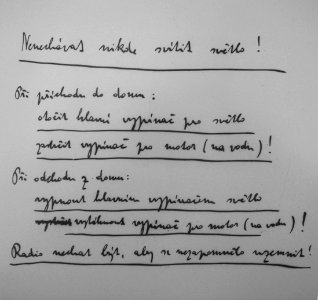 Nenechávat nikde svítit světlo!
Při příchodu do domu:
otočit hlavní vypínač pro světlo
zatočit vypínač pro motor (na vodu)!
Při odchodu z domu:
vypnout hlavním vypínačem světlo
vytáhnout vypínač pro motor (na vodu)!
Radio nechat být, aby se nezapomnělo uzemnit!